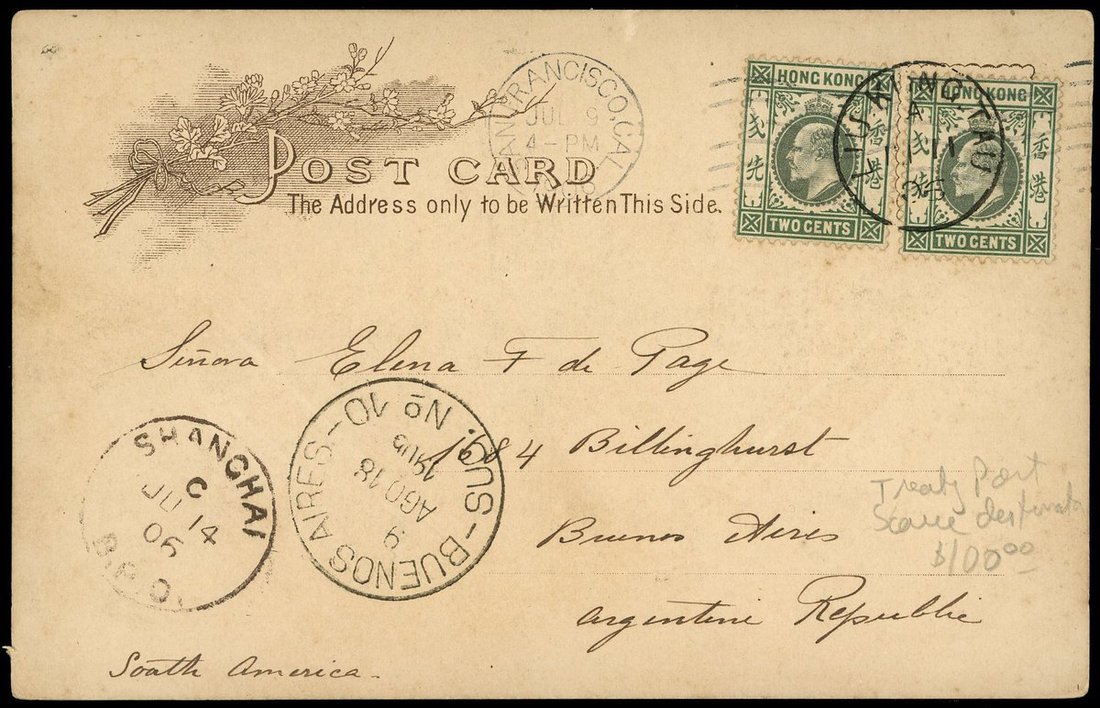 SAN FRANCISCO, CAL.
JUL 9
4-PM
POST CARD
The Address only to be Written This Side.
HONG KONG
香港
TWO CENTS
HONG KONG
香港
TWO CENTS
LIU KUNG TAU
A
11
Señora Elena F de Page
1684 Billinghurst
Buenos Aires
Argentine Republic
South America.
SHANGHAI
C
JU 14
06
B.P.O.
BUENOS AIRES.-SUC. No 10
AGO 18
9
Treaty Port
Scarce
$100.00